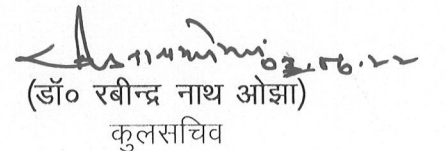 03.06.22
(डॉ० रबीन्द्र नाथ ओझा)
कुलसचिव